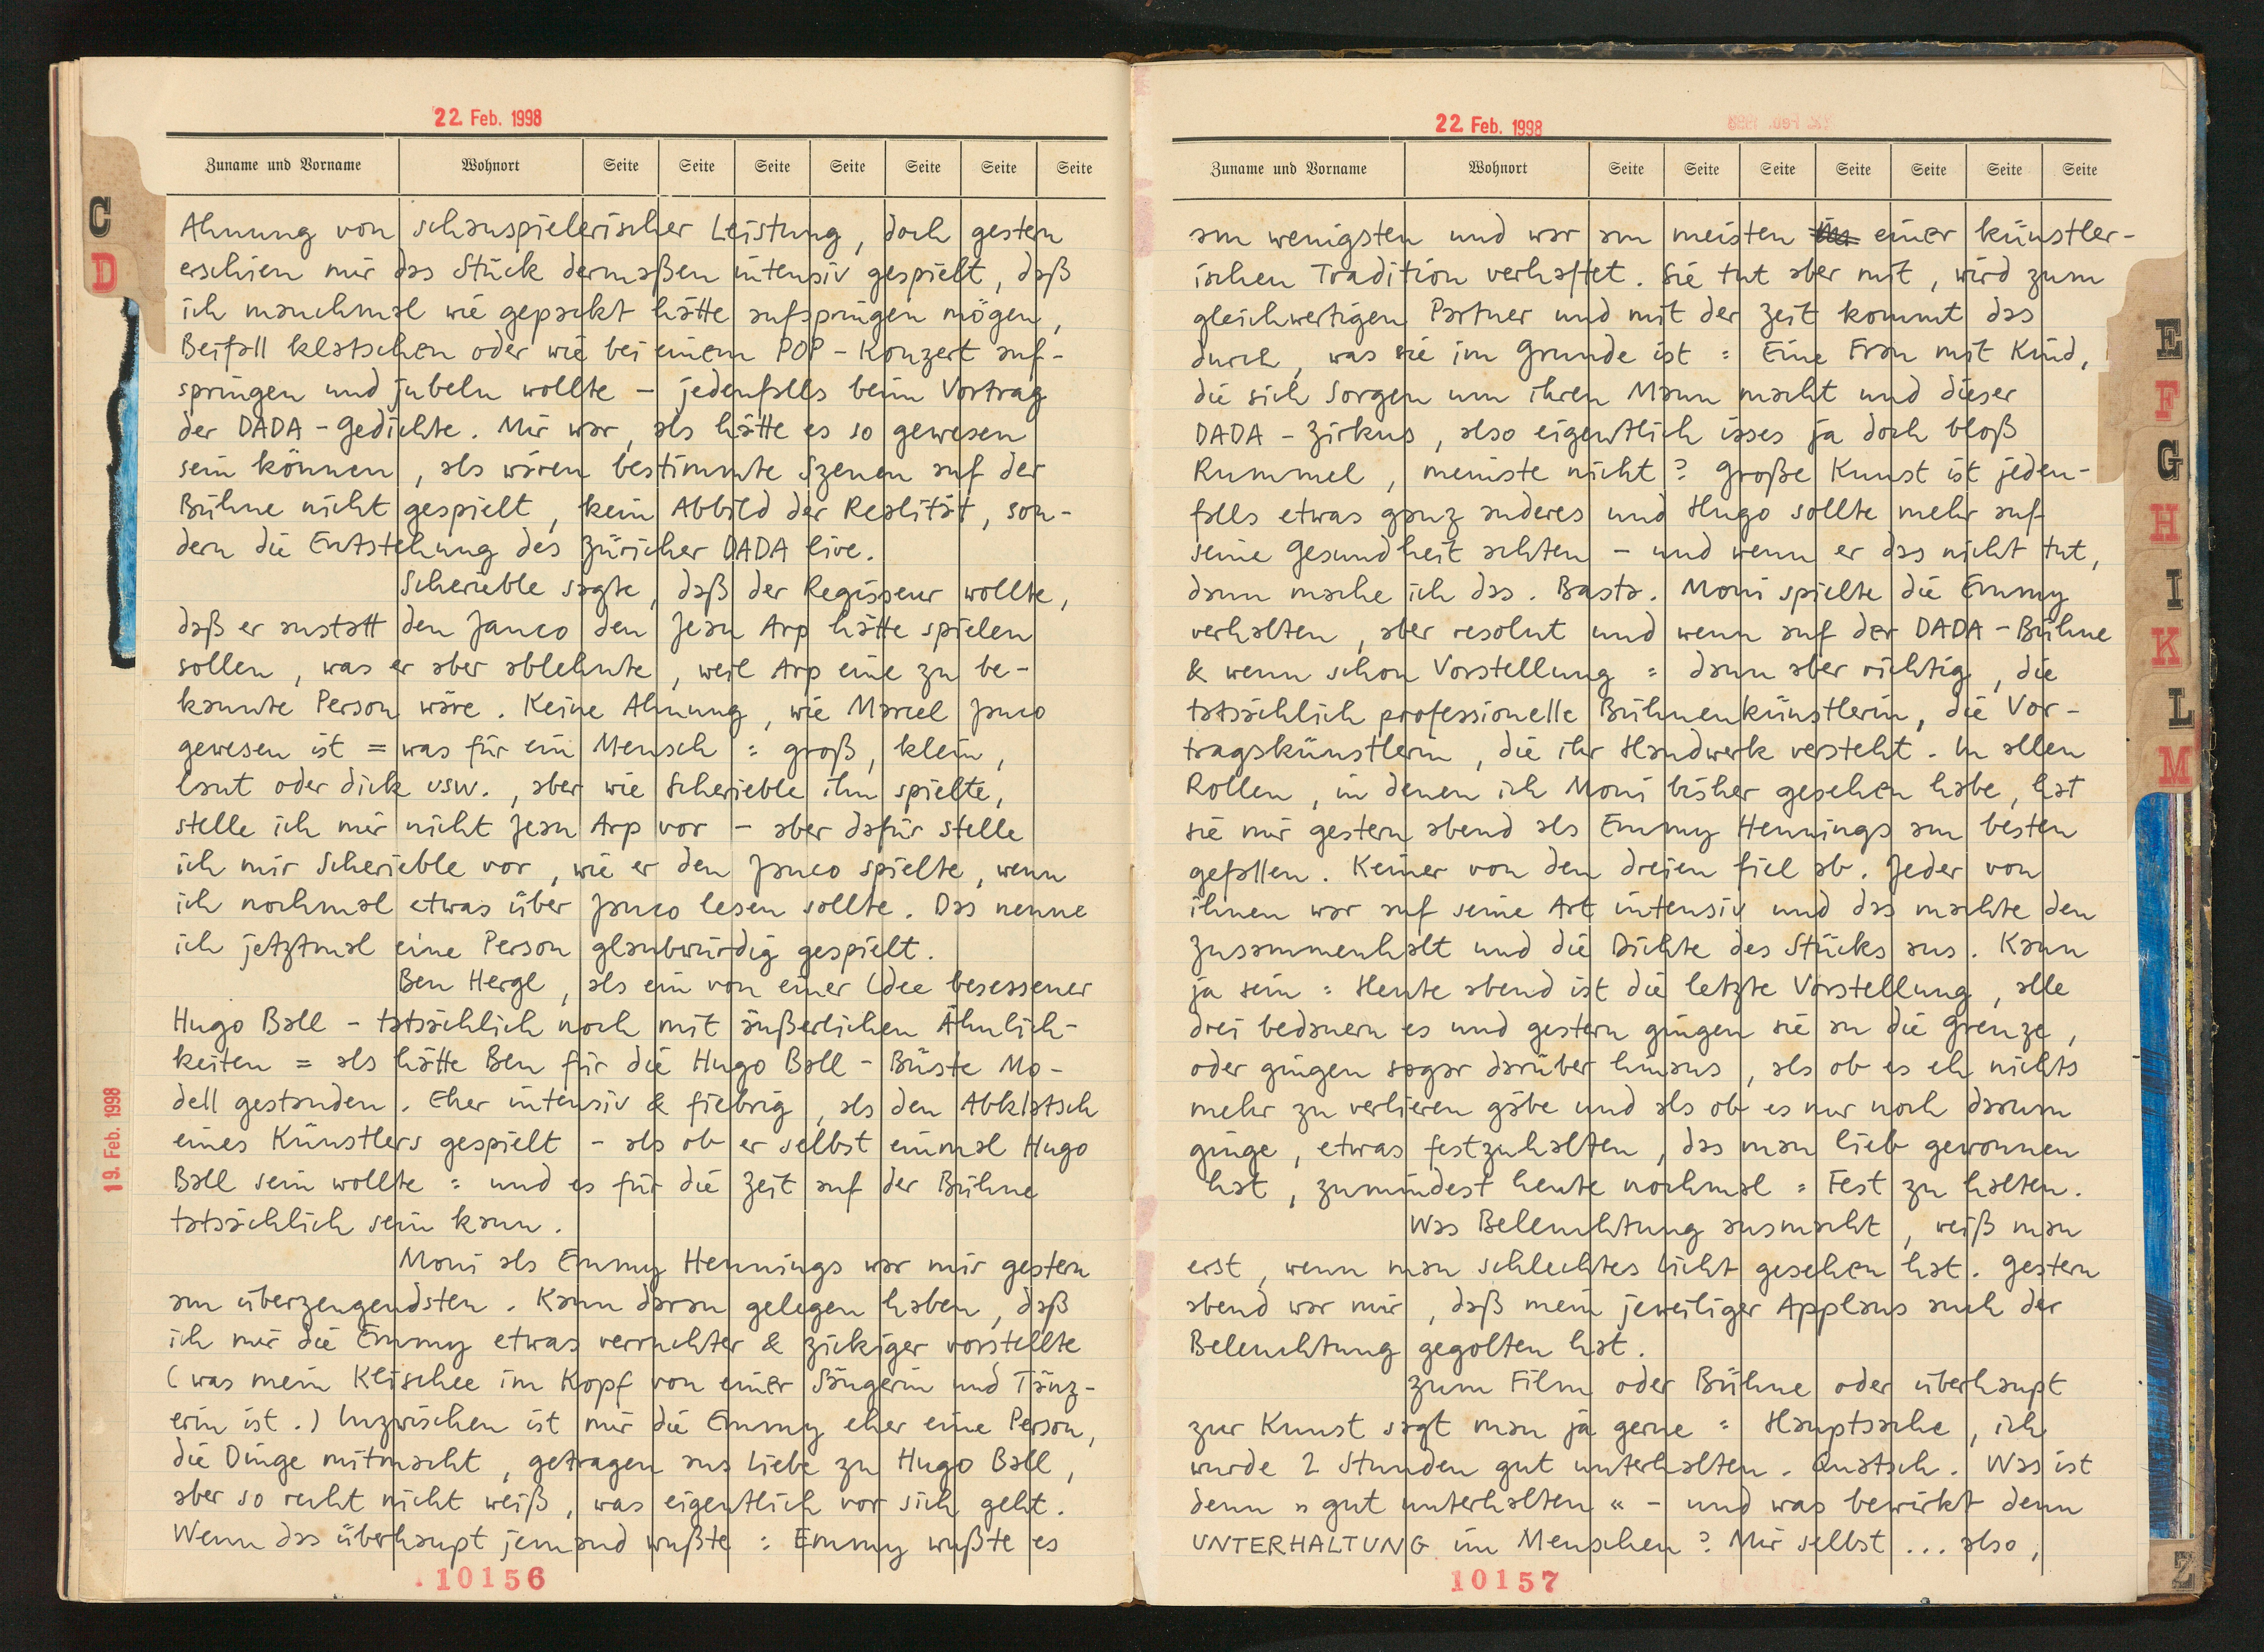 22. Feb. 1998
Zuname und Vorname Wohnort Seite Seite Seite Seite Seite Seite Seite
C
D
Ahnung von schauspielerischer Leistung, doch gestern
erschien mir das Stück dermaßen intensiv gespielt, daß
ich manchmal wie gepackt hätte aufspringen mögen,
Beifall klatschen oder wie bei einem POP-Konzert auf-
springen und jubeln wollte – jedenfalls beim Vortrag
der DADA-Gedichte. Mir war, als hätte es so gewesen
sein können, als wären bestimmte Szenen auf der
Bühne nicht gespielt, kein Abbild der Realität, son-
dern die Entstehung des Züricher DADA live.
Scherieble sagte, daß der Regisseur wollte,
daß er anstatt den Janco den Jean Arp hätte spielen
sollen, was er aber ablehnte, weil Arp eine zu be-
kannte Person wäre. Keine Ahnung, wie Marcel Janco
gewesen ist = was für ein Mensch : groß, klein,
laut oder dick usw., aber wie Scherieble ihn spielte,
stelle ich mir nicht Jean Arp vor – aber dafür stelle
ich mir Scherieble vor, wie er den Janco spielte, wenn
ich nochmal etwas über Janco lesen sollte. Das nenne
ich jetztmal eine Person glaubwürdig gespielt.
Ben Hergl, als ein von einer Idee besessener
Hugo Ball – tatsächlich noch mit äußerlichen Ähnlich-
keiten = als hätte Ben für die Hugo Ball-Büste Mo-
dell gestanden. Eher intensiv & fiebrig, als den Abklatsch
eines Künstlers gespielt – als ob er selbst einmal Hugo
Ball sein wollte : und es für die Zeit auf der Bühne
tatsächlich sein kann.
Moni als Emmy Hennings war mir gestern
am überzeugendsten. Kann daran gelegen haben, daß
ich mir die Emmy etwas verruchter & zickiger vorstellte
(was mein Klischee im Kopf von einer Sängerin und Tänz-
erin ist.) Inzwischen ist mir die Emmy eher eine Person,
die Dinge mitmacht, getragen aus Liebe zu Hugo Ball,
aber so recht nicht weiß, was eigentlich vor sich geht.
Wenn das überhaupt jemand wußte : Emmy wußte es
19. Feb. 1998
10156
22. Feb. 1998
Zuname und Vorname Wohnort Seite Seite Seite Seite Seite Seite Seite
am wenigsten und war am meisten einer künstler-
ischen Tradition verhaftet. Sie tut aber mit, wird zum
gleichwertigen Partner und mit der Zeit kommt das
durch, was sie im Grunde ist : Eine Frau mit Kind,
die sich Sorgen um ihren Mann macht und dieser
DADA-Zirkus, also eigentlich isses ja doch bloß
Rummel, meinste nicht? Große Kunst ist jeden-
falls etwas ganz anderes und Hugo sollte mehr auf
seine Gesundheit achten – und wenn er das nicht tut,
dann mache ich das. Basta. Moni spielte die Emmy
verhalten, aber resolut und wenn auf der DADA-Bühne
& wenn schon Vorstellung : dann aber richtig, die
tatsächlich professionelle Bühnenkünstlerin, die Vor-
tragskünstlerin, die ihr Handwerk versteht. In allen
Rollen, in denen ich Moni bisher gesehen habe, hat
sie mir gestern abend als Emmy Hennings am besten
gefallen. Keiner von den dreien fiel ab. Jeder von
ihnen war auf seine Art intensiv und das machte den
Zusammenhalt und die Dichte des Stücks aus. Kann
ja sein : Heute abend ist die letzte Vorstellung, alle
drei bedauern es und gestern gingen sie an die Grenze,
oder gingen sogar darüber hinaus, als ob es eh nichts
mehr zu verlieren gäbe und als ob es nur noch darum
ginge, etwas festzuhalten, das man lieb gewonnen
hat, zumindest heute nochmal : Fest zu halten.
Was Beleuchtung ausmacht, weiß man
erst, wenn man schlechtes Licht gesehen hat. Gestern
abend war mir, daß mein jeweiliger Applaus auch der
Beleuchtung gegolten hat.
Zum Film oder Bühne oder überhaupt
zur Kunst sagt man ja gerne : Hauptsache, ich
wurde 2 Stunden gut unterhalten. Quatsch. Was ist
denn »gut unterhalten« – und was bewirkt denn
UNTERHALTUNG im Menschen? Mir selbst ... also,
10157
E
F
G
H
I
K
L
M
Z